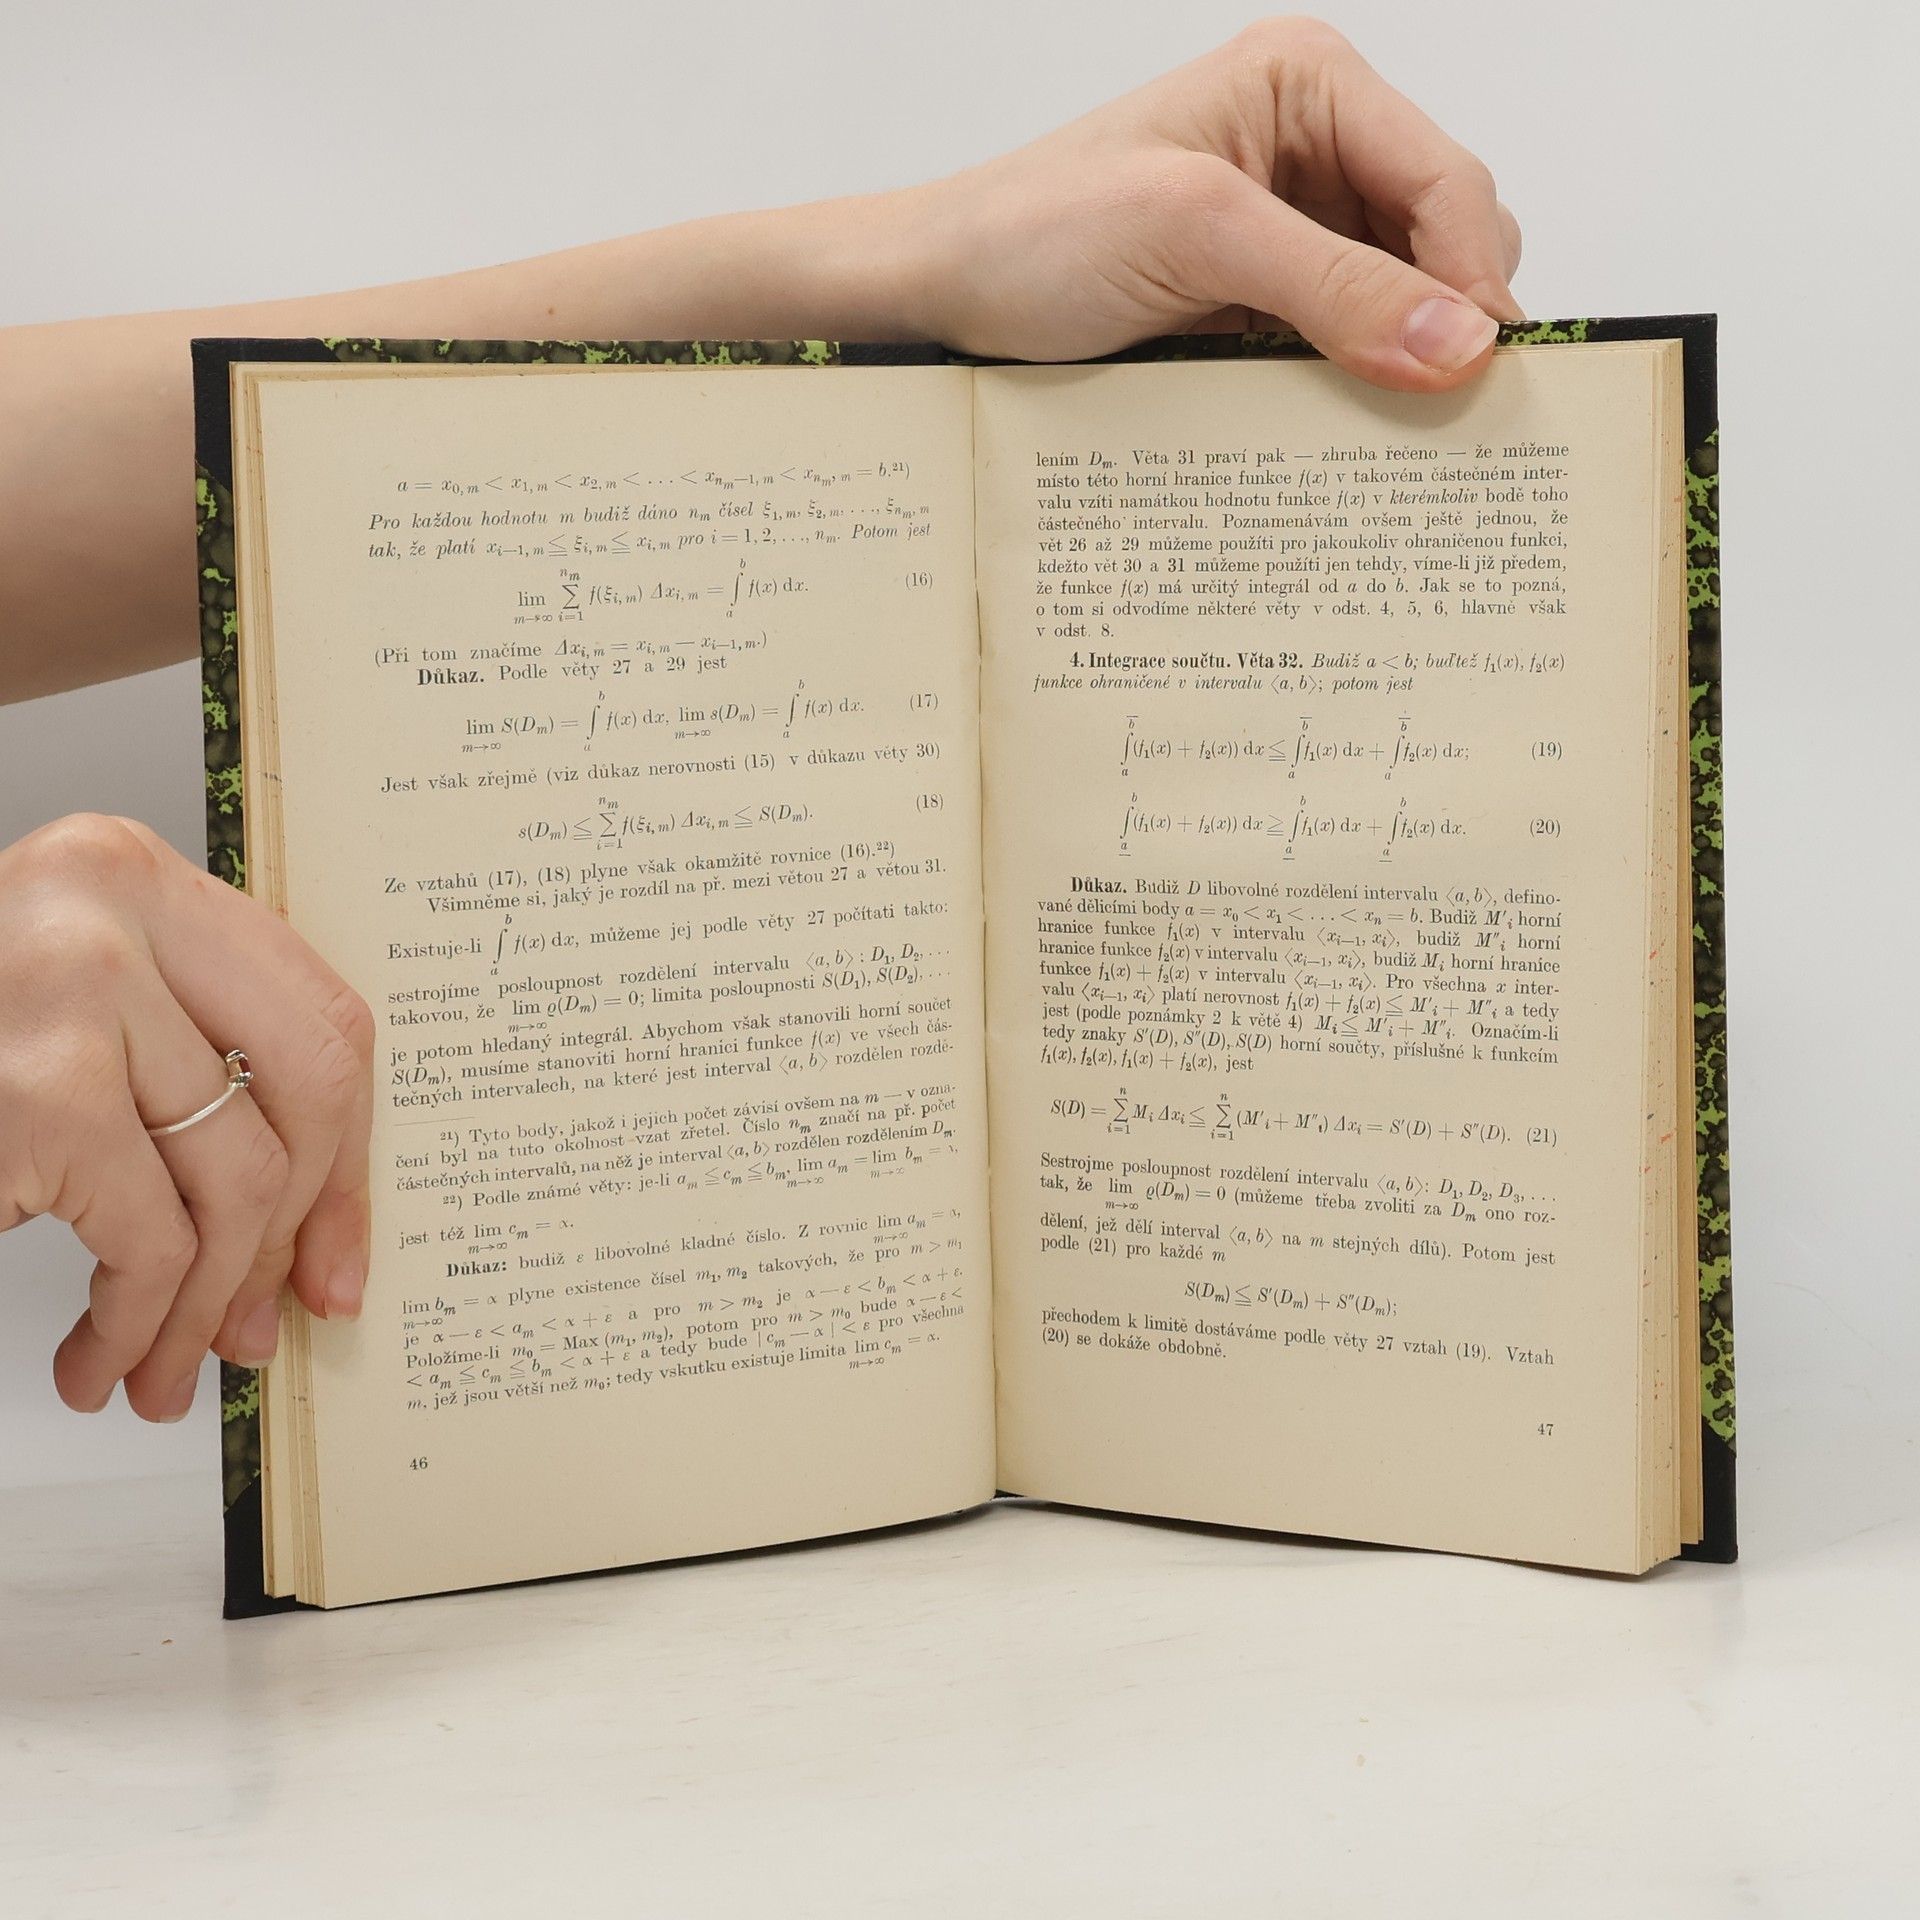 a = x₀, ₘ < x₁, ₘ < x₂, ₘ < . . . < xₙₘ₋₁, ₘ < xₙₘ, ₘ = b.²¹)
Pro každou hodnotu m budiž dáno nₘ čísel ξ₁, ₘ, ξ₂, ₘ, . . ., ξₙₘ, ₘ
tak, že platí xᵢ₋₁, ₘ ≦ ξᵢ, ₘ ≦ xᵢ, ₘ pro i = 1, 2, . . ., nₘ. Potom jest
lim_{m→∞} ∑_{i=1}^{nₘ} f(ξᵢ, ₘ) Δxᵢ, ₘ = ∫_a^b f(x) dx. (16)
(Při tom značíme Δxᵢ, ₘ = xᵢ, ₘ — xᵢ₋₁, ₘ.)
Důkaz. Podle věty 27 a 29 jest
lim_{m→∞} S(Dₘ) = ∫_a^b f(x) dx, lim_{m→∞} s(Dₘ) = ∫_a^b f(x) dx. (17)
Jest však zřejmě (viz důkaz nerovnosti (15) v důkazu věty 30)
s(Dₘ) ≦ ∑_{i=1}^{nₘ} f(ξᵢ, ₘ) Δxᵢ, ₘ ≦ S(Dₘ). (18)
Ze vztahů (17), (18) plyne však okamžitě rovnice (16).²²)
Všimněme si, jaký je rozdíl na př. mezi větou 27 a větou 31.
Existuje-li ∫_a^b f(x) dx, můžeme jej podle věty 27 počítati takto:
sestrojíme posloupnost rozdělení intervalu ⟨a, b⟩ : D₁, D₂, . . .
takovou, že lim_{m→∞} ϱ(Dₘ) = 0; limita posloupnosti S(D₁), S(D₂), . . .
je potom hledaný integrál. Abychom však stanovili horní součet
S(Dₘ), musíme stanoviti horní hranici funkce f(x) ve všech čás-
tečných intervalech, na které jest interval ⟨a, b⟩ rozdělen rozdě-
²¹) Tyto body, jakož i jejich počet závisí ovšem na m — v ozna-
čení byl na tuto okolnost vzat zřetel. Číslo nₘ značí na př. počet
částečných intervalů, na něž je interval ⟨a, b⟩ rozdělen rozdělením Dₘ.
²²) Podle známé věty: je-li aₘ ≦ cₘ ≦ bₘ, lim_{m→∞} aₘ = lim_{m→∞} bₘ = α,
jest též lim_{m→∞} cₘ = α.
Důkaz: budiž ε libovolné kladné číslo. Z rovnic lim_{m→∞} aₘ = α,
lim_{m→∞} bₘ = α plyne existence čísel m₁, m₂ takových, že pro m > m₁
je α — ε < aₘ < α + ε a pro m > m₂ je α — ε < bₘ < α + ε.
Položíme-li m₀ = Max (m₁, m₂), potom pro m > m₀ bude α — ε <
< aₘ ≦ cₘ ≦ bₘ < α + ε a tedy bude | cₘ — α | < ε pro všechna
m, jež jsou větší než m₀; tedy vskutku existuje limita lim_{m→∞} cₘ = α.
46
lením Dₘ. Věta 31 praví pak — zhruba řečeno — že můžeme
místo této horní hranice funkce f(x) v takovém částečném inter-
valu vzíti namátkou hodnotu funkce f(x) v kterémkoliv bodě toho
částečného intervalu. Poznamenávám ovšem ještě jednou, že
vět 26 až 29 můžeme použíti pro jakoukoliv ohraničenou funkci,
kdežto vět 30 a 31 můžeme použíti jen tehdy, víme-li již předem,
že funkce f(x) má určitý integrál od a do b. Jak se to pozná,
o tom si odvodíme některé věty v odst. 4, 5, 6, hlavně však
v odst. 8.
4. Integrace součtu. Věta 32. Budiž a < b; buďtež f₁(x), f₂(x)
funkce ohraničené v intervalu ⟨a, b⟩; potom jest
∫_a^b̅ (f₁(x) + f₂(x)) dx ≦ ∫_a^b̅ f₁(x) dx + ∫_a^b̅ f₂(x) dx; (19)
∫_a̲^b (f₁(x) + f₂(x)) dx ≧ ∫_a̲^b f₁(x) dx + ∫_a̲^b f₂(x) dx. (20)
Důkaz. Budiž D libovolné rozdělení intervalu ⟨a, b⟩, defino-
vané dělicími body a = x₀ < x₁ < . . . < xₙ = b. Budiž M′ᵢ horní
hranice funkce f₁(x) v intervalu ⟨xᵢ₋₁, xᵢ⟩, budiž M″ᵢ horní
hranice funkce f₂(x) v intervalu ⟨xᵢ₋₁, xᵢ⟩, budiž Mᵢ horní hranice
funkce f₁(x) + f₂(x) v intervalu ⟨xᵢ₋₁, xᵢ⟩. Pro všechna x inter-
valu ⟨xᵢ₋₁, xᵢ⟩ platí nerovnost f₁(x) + f₂(x) ≦ M′ᵢ + M″ᵢ a tedy
jest (podle poznámky 2 k větě 4) Mᵢ ≦ M′ᵢ + M″ᵢ. Označím-li
tedy znaky S′(D), S″(D), S(D) horní součty, příslušné k funkcím
f₁(x), f₂(x), f₁(x) + f₂(x), jest
S(D) = ∑_{i=1}^n Mᵢ Δxᵢ ≦ ∑_{i=1}^n (M′ᵢ + M″ᵢ) Δxᵢ = S′(D) + S″(D). (21)
Sestrojme posloupnost rozdělení intervalu ⟨a, b⟩: D₁, D₂, D₃, . . .
tak, že lim_{m→∞} ϱ(Dₘ) = 0 (můžeme třeba zvoliti za Dₘ ono roz-
dělení, jež dělí interval ⟨a, b⟩ na m stejných dílů). Potom jest
podle (21) pro každé m
S(Dₘ) ≦ S′(Dₘ) + S″(Dₘ);
přechodem k limitě dostáváme podle věty 27 vztah (19). Vztah
(20) se dokáže obdobně.
47